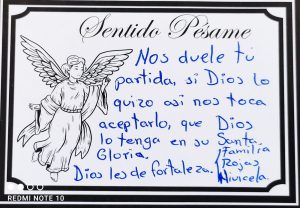 Sentido Pésame
Nos duele tu
partida, si Dios lo
quizo asi nos toca
aceptarlo, que Dios
lo tenga en su
Gloria.
Dios les de fortaleza.
Santa
Familia
Rojas
Nivicela.
REDMI NOTE 10